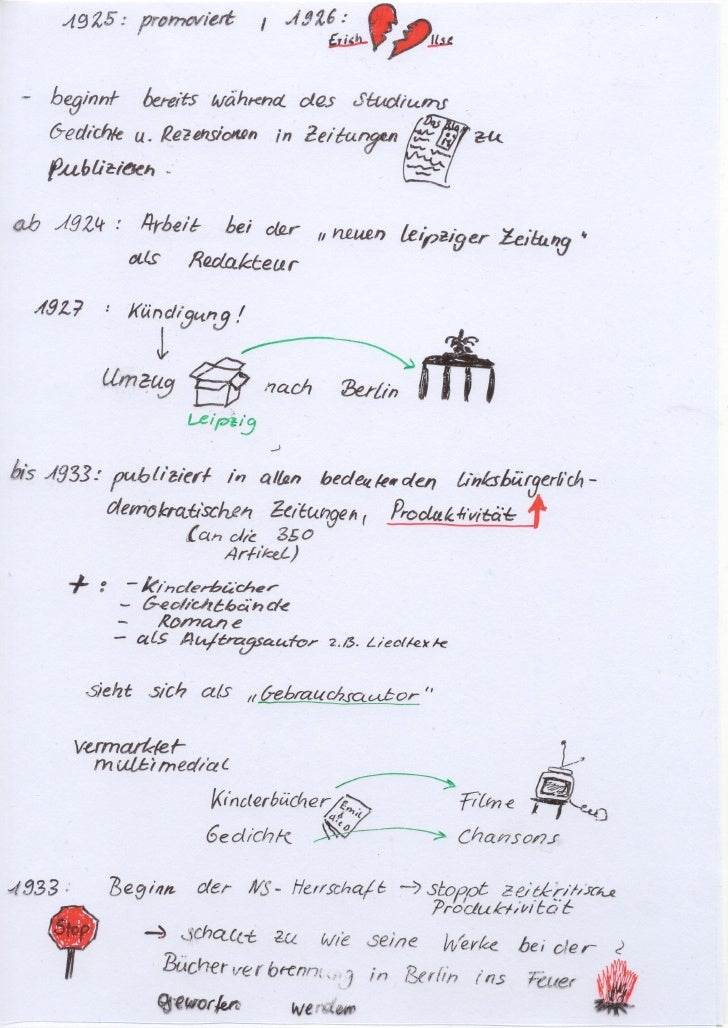 1925: promoviert , 1926:
Erich Ilse
- beginnt bereits während des Studiums
Gedichte u. Rezensionen in Zeitungen zu
Publizieren.
ab 1924: Arbeit bei der „neuen Leipziger Zeitung"
als Redakteur
1927 : Kündigung!
Umzug nach Berlin
Leipzig
bis 1933: publiziert in allen bedeutenden linksbürgerlich-
demokratischen Zeitungen, Produktivität
(an die 350
Artikel)
+ : - Kinderbücher
- Gedichtbände
- Romane
- als Auftragsautor z.B. Liedtexte
sieht sich als „Gebrauchsautor"
vermarktet
multimedial
Kinderbücher → Filme
Emil & die D
Gedichte → Chansons
1933: Beginn der NS-Herrschaft → stoppt zeitkritische
Produktivität
Stop
→ schaut zu wie seine Werke bei der
Bücherverbrennung in Berlin ins Feuer
geworfen werden